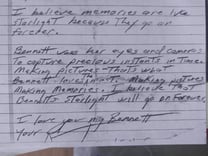 I believe memories are like
Starlight because they go on
forever.
Bennett uses her eyes and camera
To capture precious instants in Time.
Making pictures - that's what
Bennett
Making Memories. I believe that
Bennett's Starlight will go on Forever.
I love you my Bennett
Your